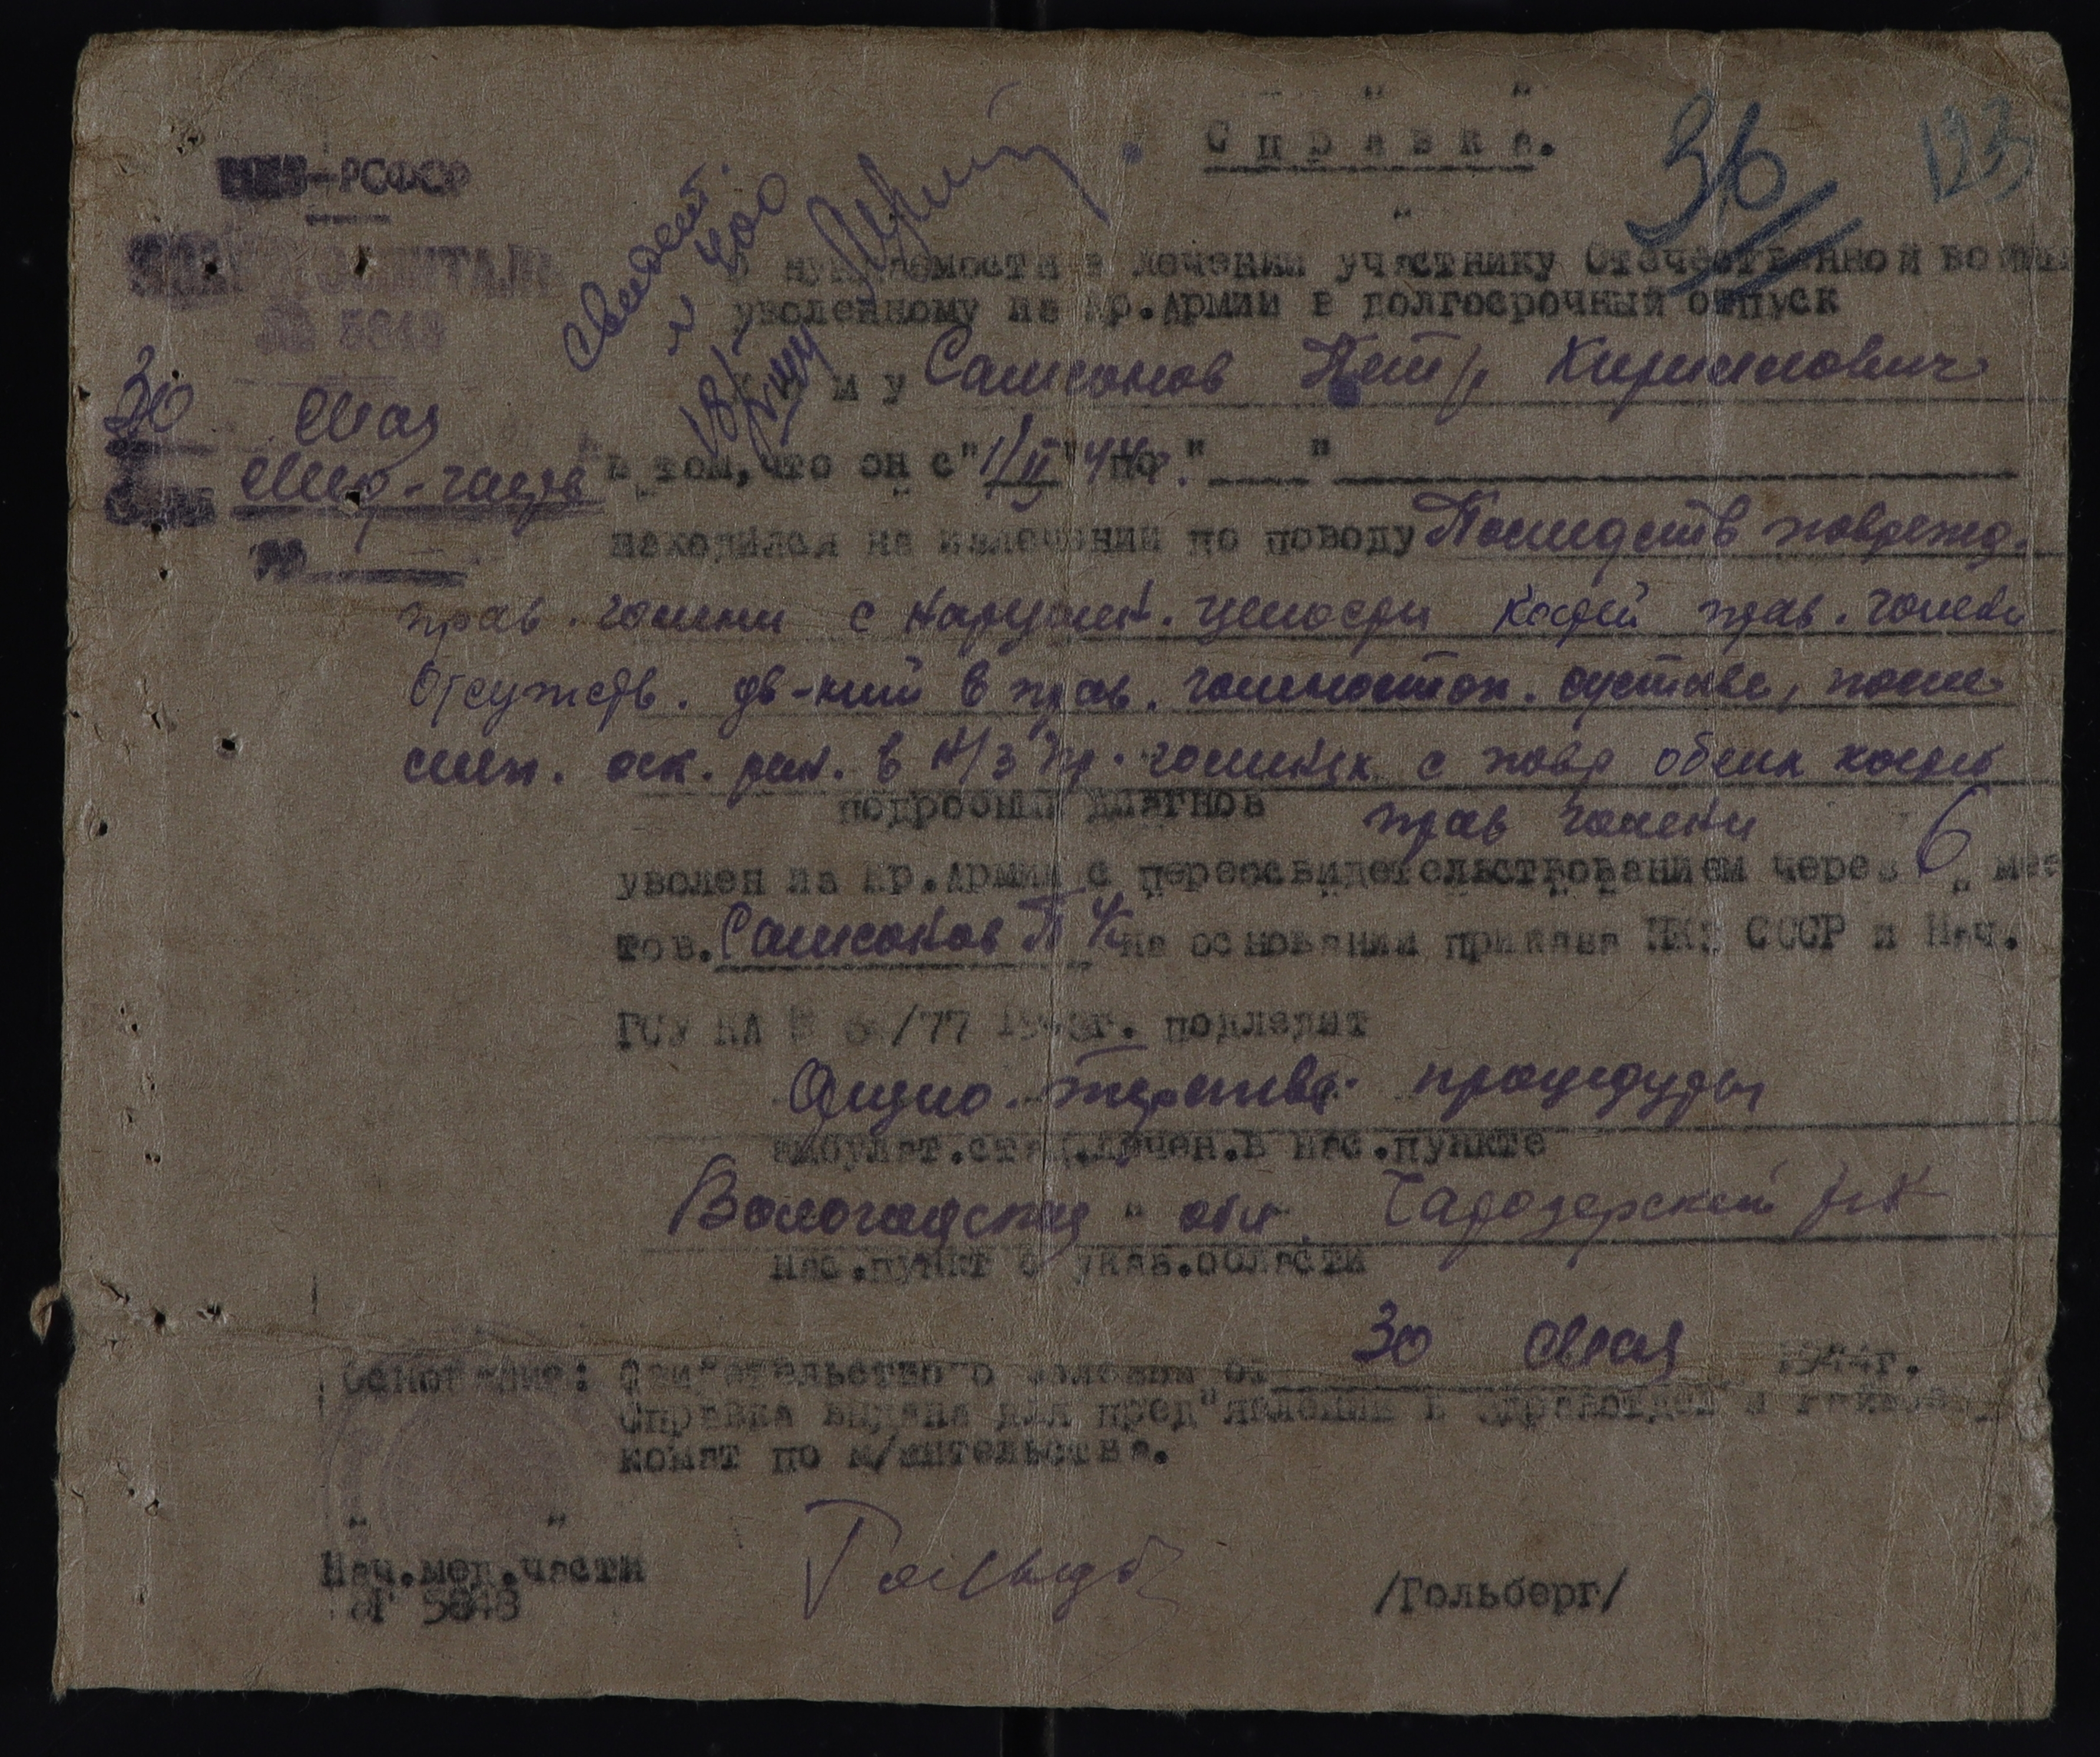 Справка.
36
123
НКЗ-РСФСР
ЭВАКОГОСПИТАЛЬ
№ 5843
30 мая
Свидет.
№ 400
о нуждаемости в лечении участнику Отечественной войны
уволенному из Кр.Армии в долгосрочный отпуск
Кому Самсонов Петр Кириллович
в том, что он с "1/II" 44 г. по "___"
находился на излечении по поводу Последств поврежд.
прав. голени с наруш. целости костей прав. голени
Отсутств. дв-ний в прав. голеностоп. суставе, после
слеп. оск. ран. в н/3 пр. голени с повр обеих костей
подробный диагноз прав голени
уволен из Кр.Армии с переосвидетельствованием через 6 мес
тов. Самсонов П К на основании приказа НКЗ СССР и Нач.
ГСУ КА № /77 194 г. подлежит
Физио-терапевт. процедуры
амбулат.стац.лечен.в нас.пункте
Вологодская обл. Чарозерский р-н
нас.пункт с указ.области
Основание: Свидетельство о болезни от 30 мая 1944г.
Справка выдана для пред"явления в здравотдел и
комат по м/жительства.
Нач.мед.части
эГ 5843
/Гольберг/